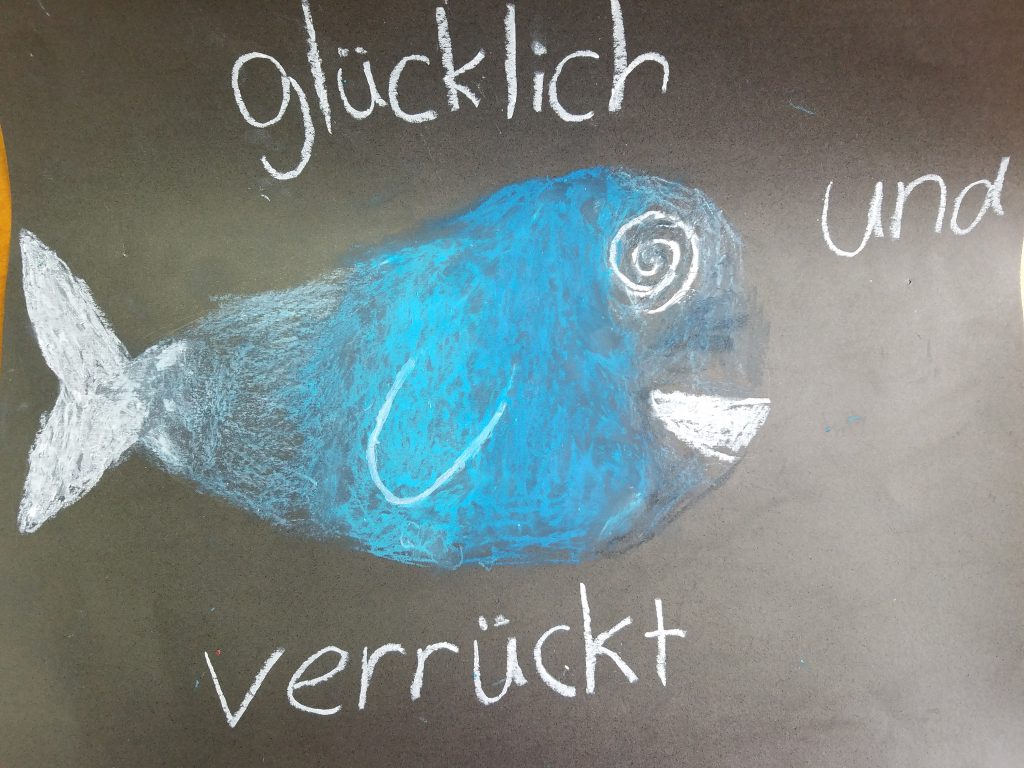 glücklich
und
verrückt